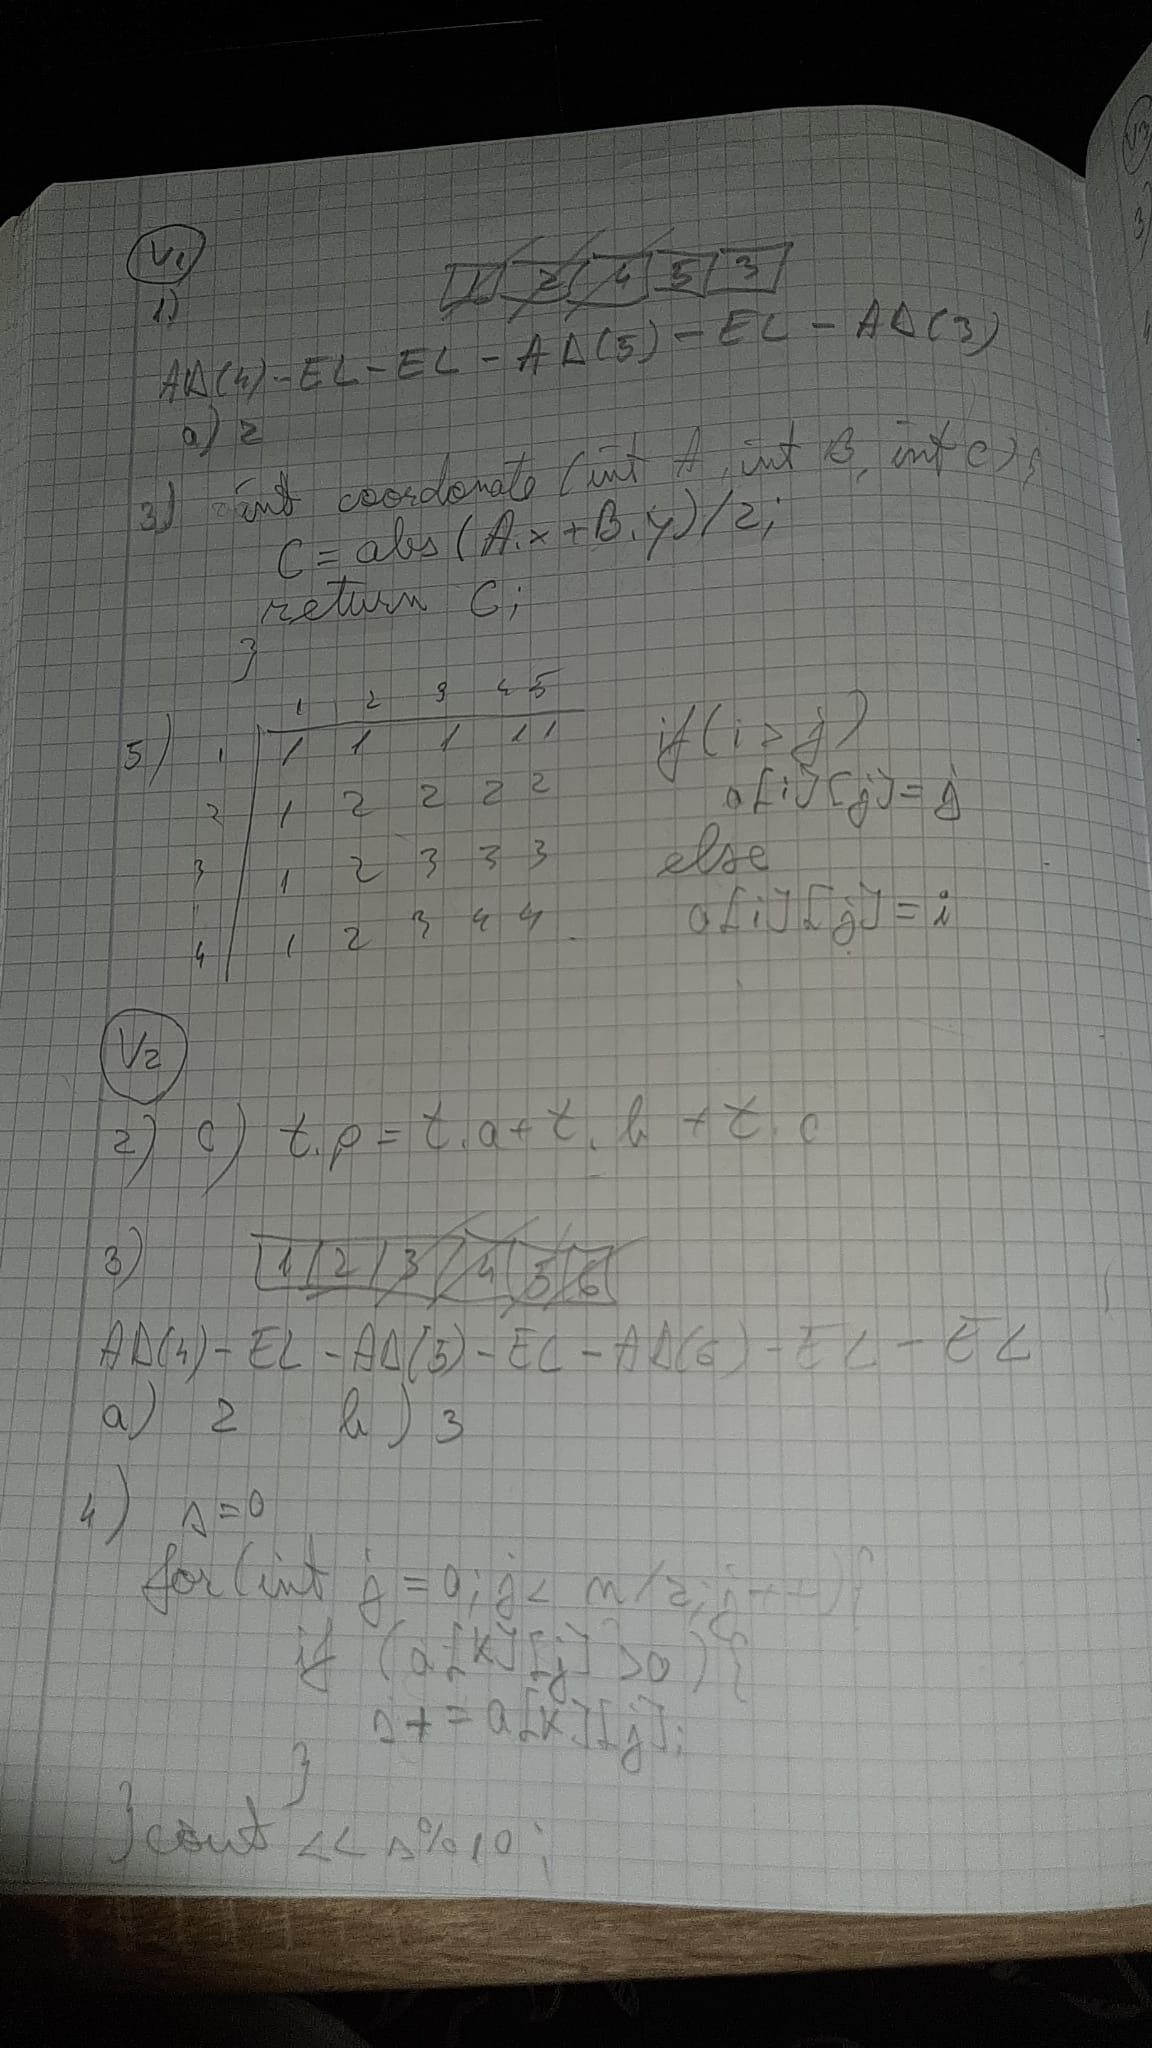 V1
1) 1 2 4 5 3
AD(4)-EL-EL-AD(5)-EL-AD(3)
a) 2
3) int coordonate (int A, int B, int C){
C=abs(A.x+B.y)/2;
return C;
}
1 2 3 4 5
5) 1 1 1 1 1 1 if(i>j)
2 1 2 2 2 2 a[i][j]=j
3 1 2 3 3 3 else
4 1 2 3 4 4 a[i][j]=i
V2
2) c) t.p=t.a+t.b+t.c
3) 1 2 3 4 5 6
AD(4)-EL-AD(5)-EL-AD(6)-EL-EL
a) 2 b) 3
4) s=0
for(int j=0;j<n/2;j++){
if (a[x][j]>0){
s+=a[x][j];
}
}cout<<s%10;
V3
3)